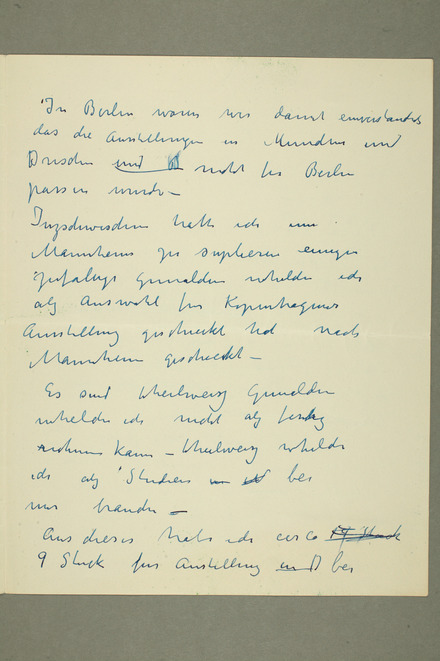 In Berlin waren wir damit einverstanden
das die Ausstellungen in München und
Dresden und nicht für Berlin
passen würde –
Inzschwischen hatte ich um
Mannheim zu einigen
Gemälden welche ich
als Auswahl für Kopenhagener
Ausstellung geschickt hat nach
Mannheim geschickt –
Es sind theilweise Gemälden
welche ich nicht als fertig
nehmen kann – theilweise welche
ich als Studien bei
mir brauche –
Aus dieses habe ich circa 14 Stück
9 Stück für Ausstellung bei